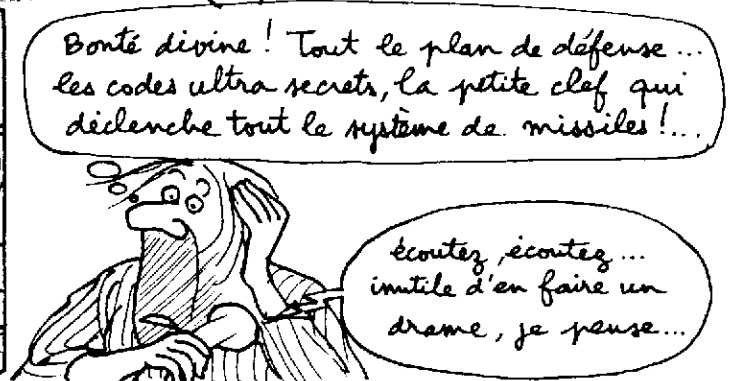 Bonté divine ! Tout le plan de défense ...
les codes ultra secrets, la petite clef qui
déclenche tout le système de missiles !....
écoutez, écoutez ...
inutile d'en faire un
drame, je pense...